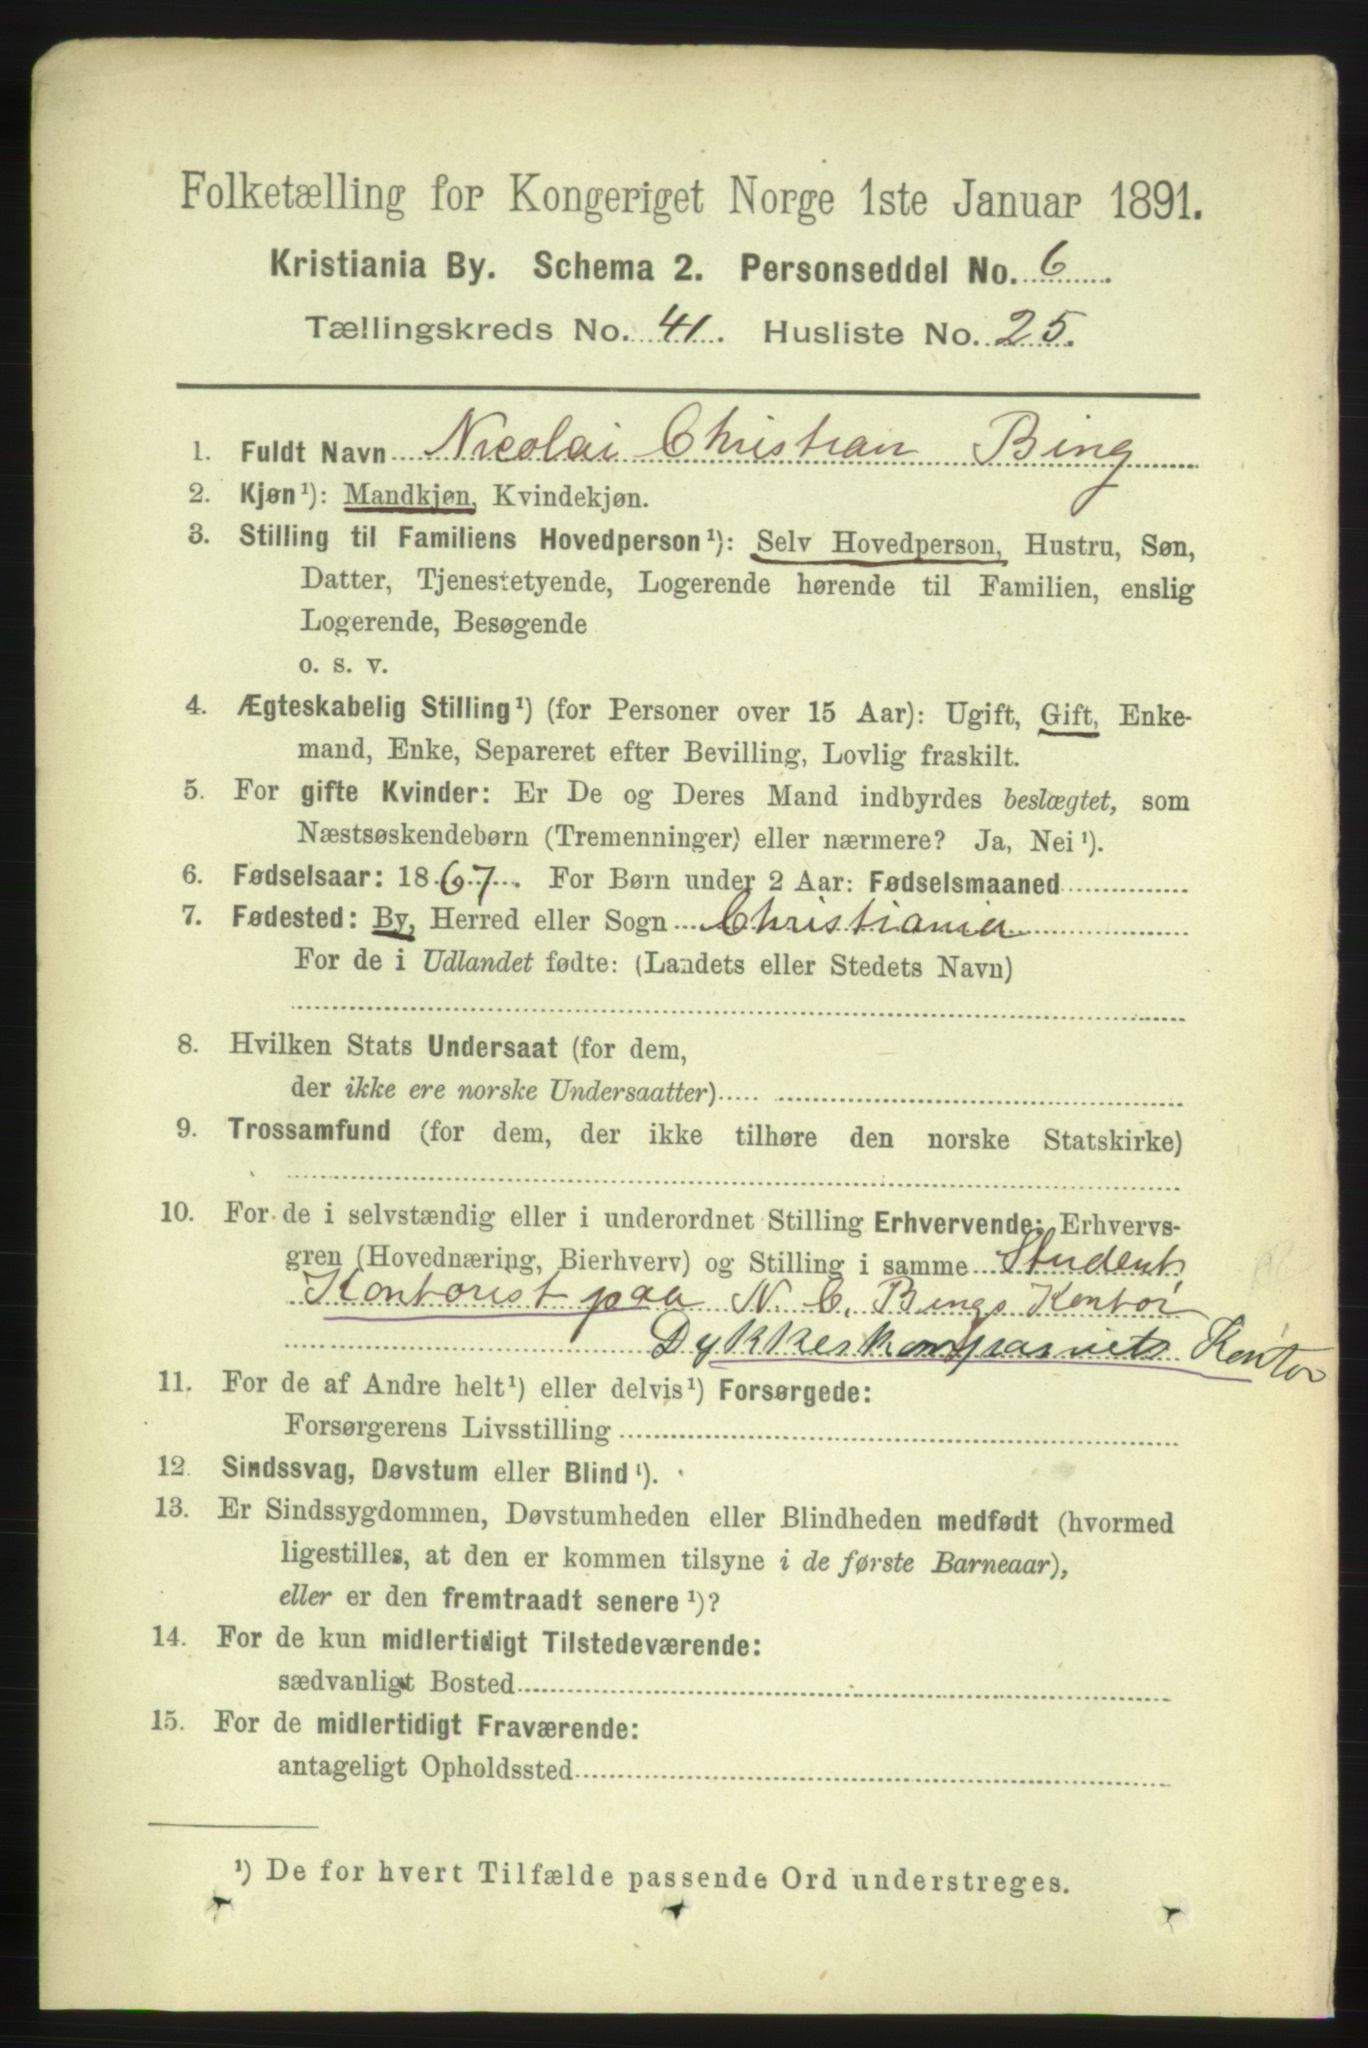 Folketælling for Kongeriget Norge 1ste Januar 1891.
Kristiania By. Schema 2. Personseddel No. 6.
Tællingskreds No. 41. Husliste No. 25.
1. Fuldt Navn Nicolai Christian Bing
2. Kjøn¹): Mandkjøn, Kvindekjøn.
3. Stilling til Familiens Hovedperson¹): Selv Hovedperson, Hustru, Søn,
Datter, Tjenestetyende, Logerende hørende til Familien, enslig
Logerende, Besøgende
o. s. v.
4. Ægteskabelig Stilling¹) (for Personer over 15 Aar): Ugift, Gift, Enke-
mand, Enke, Separeret efter Bevilling, Lovlig fraskilt.
5. For gifte Kvinder: Er De og Deres Mand indbyrdes beslægtet, som
Næstsøskendebørn (Tremenninger) eller nærmere? Ja, Nei¹).
6. Fødselsaar: 1867. For Børn under 2 Aar: Fødselsmaaned
7. Fødested: By, Herred eller Sogn Christiania
For de i Udlandet fødte: (Landets eller Stedets Navn)
8. Hvilken Stats Undersaat (for dem,
der ikke ere norske Undersaatter)
9. Trossamfund (for dem, der ikke tilhøre den norske Statskirke)
10. For de i selvstændig eller i underordnet Stilling Erhvervende: Erhvervs-
gren (Hovednæring, Bierhverv) og Stilling i samme Student,
Kontorist paa N. C. Bings Kontor
Dykkerkompaniets Kontor
11. For de af Andre helt¹) eller delvis¹) Forsørgede:
Forsørgerens Livsstilling
12. Sindssvag, Døvstum eller Blind¹).
13. Er Sindssygdommen, Døvstumheden eller Blindheden medfødt (hvormed
ligestilles, at den er kommen tilsyne i de første Barneaar),
eller er den fremtraadt senere¹)?
14. For de kun midlertidigt Tilstedeværende:
sædvanligt Bosted
15. For de midlertidigt Fraværende:
antageligt Opholdssted
¹) De for hvert Tilfælde passende Ord understreges.